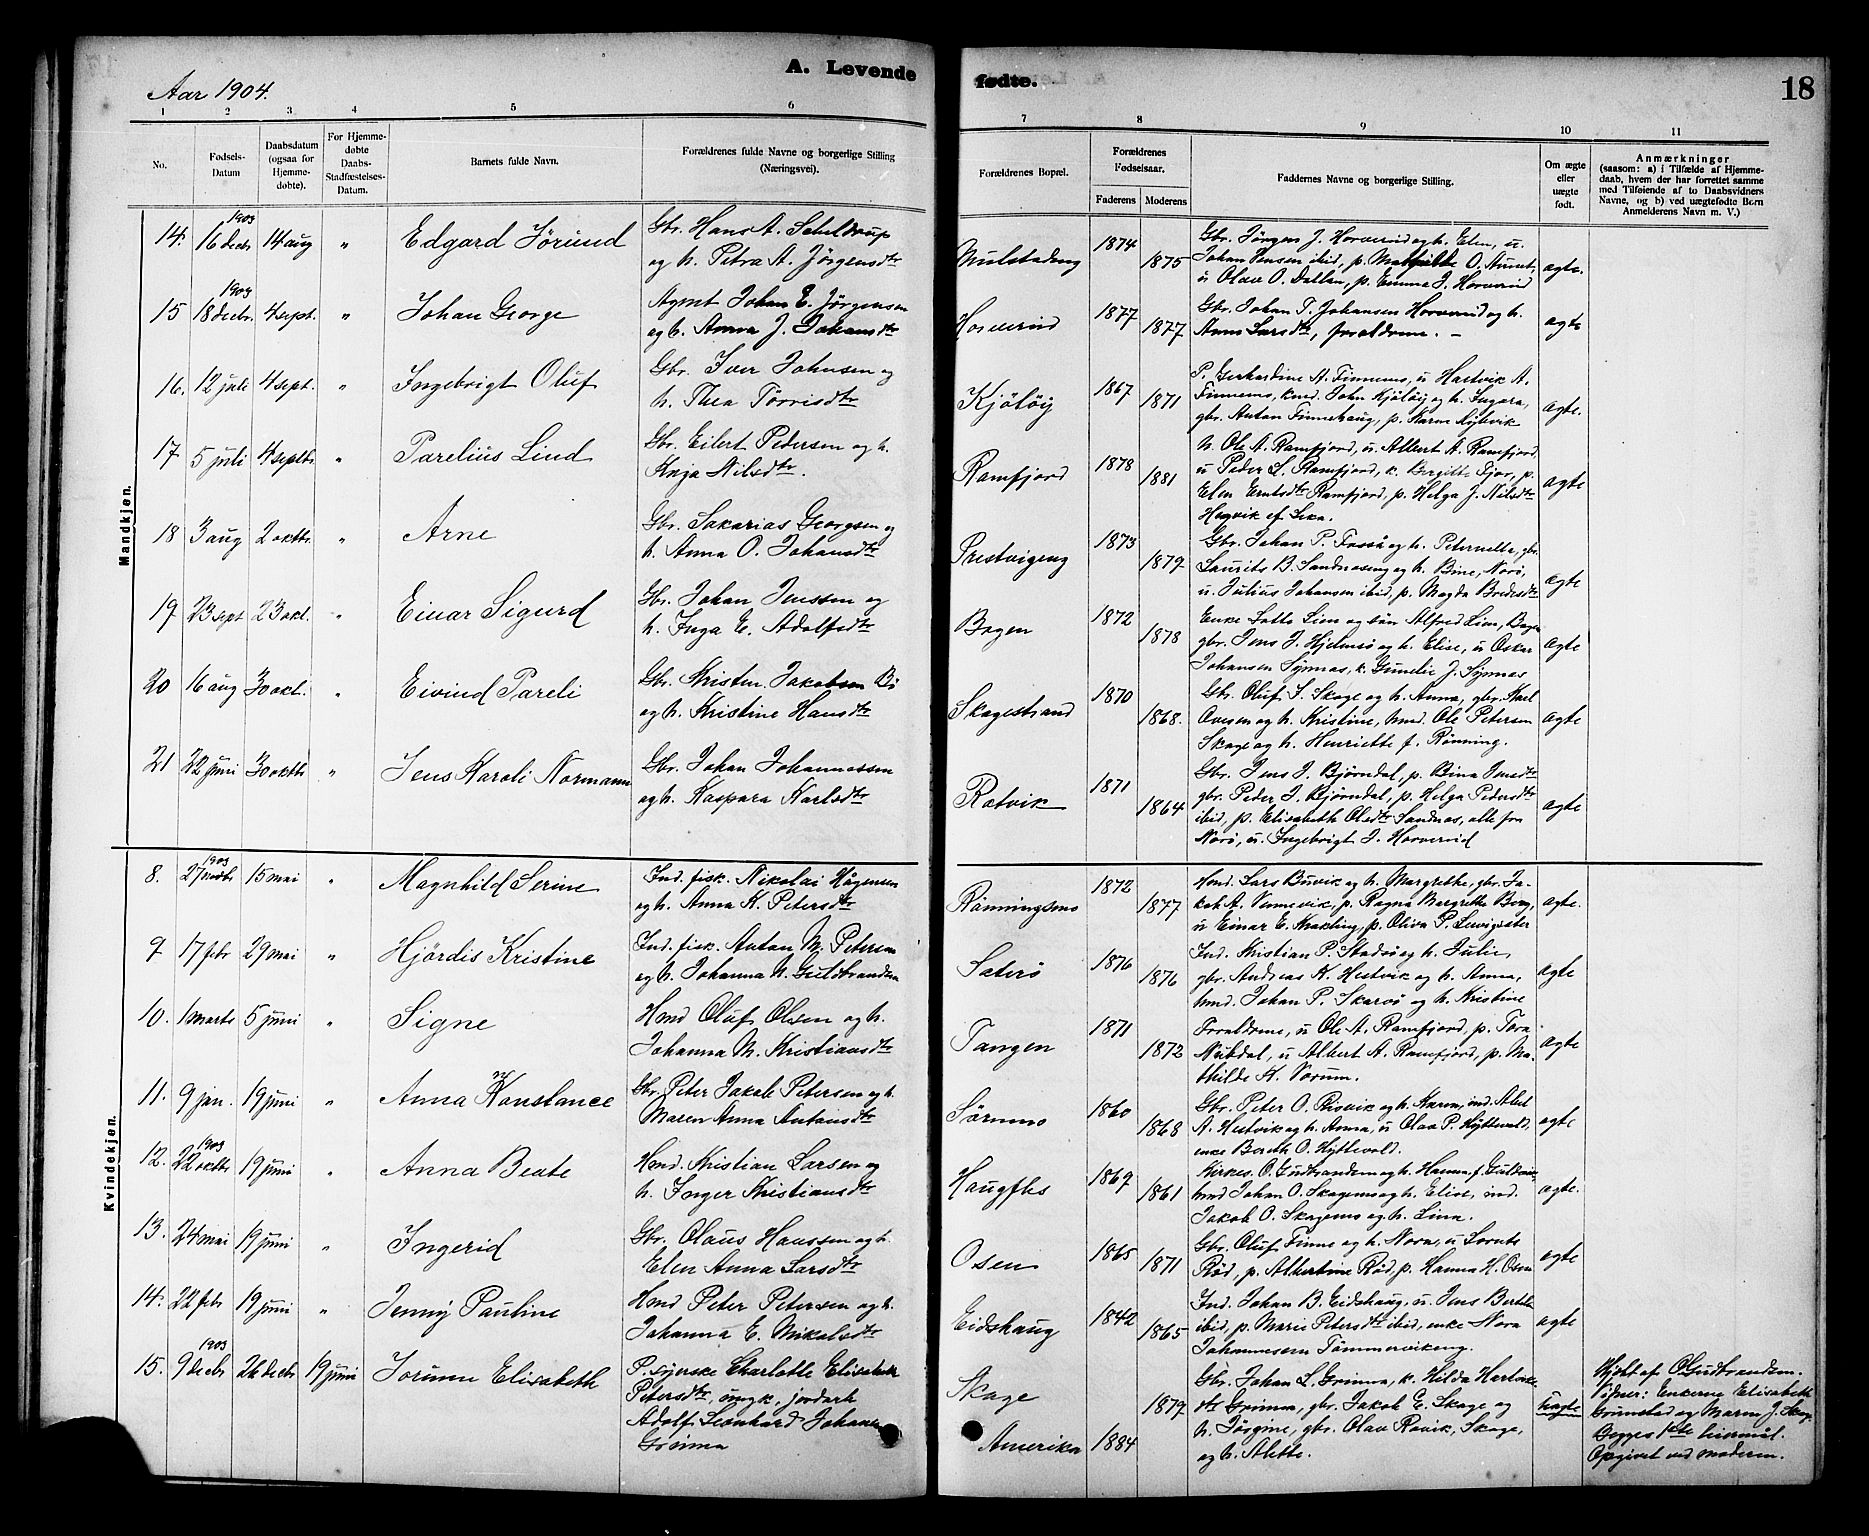 A. Levende
fødte.
18
Aar 1904.
1 2 3 4 5 6
7 8 9 10 11
No.
Fødsels-
Datum
Daabsdatum
(ogsaa for
Hjemme-
døbte).
For Hjemme-
døbte
Daabs-
Stadfæstelses-
Datum.
Barnets fulde Navn.
Forældrenes fulde Navne og borgerlige Stilling
(Næringsvei).
Forældrenes Bopæl.
Forældrenes
Fødselsaar.
Faderens Moderens
Faddernes Navne og borgerlige Stilling.
Om ægte
eller
uægte
født.
Anmærkninger
(saasom: a) i Tilfælde af Hjemme-
daab, hvem der har forrettet samme
med Tilføiende af to Daabsvidners
Navne, og b) ved uægtefødte Børn
Anmelderens Navn m. V.)
Mandkjøn.
14. 1903 16 decbr 14 aug " Edgard Jörund
Gbr. Hans A. Scheldrup
og h. Petra A. Jörgensdtr
Mulstadeng 1874 1875
Gbr. Jörgen J. Horverid og h. Elen, u.
Johan Jensen ibid, p. Mathilde O. Aunet,
u Olav O. Dallan, p. Emma J. Horverid
ægte.
15 1903 18 decbr. 4 sept. " Johan George
Agmt Johan E. Jörgensen
og h. Anna J. Johansdtr
Horverid 1877 1877
Gbr. Johan T. Johansen Horverid og h.
Anne Larsdtr, forældrene. -
ægte
16. 12 juli 4 sept. " Ingebrigt Oluf
Gbr. Iver Johnsen og
h. Thea Törrisdtr
Kjölöy 1867 1871
P. Gerhardine A. Finnemo, u Hartvik A.
Finnemo, kmd. John Kjölöy og h. Ingara,
gbr. Antan Finnehaug, p. Karen
ægte.
17 5 juli 4 septbr " Parelius Lind
Gbr. Eilert Pedersen og h.
Kaja Nilsdtr.
Ramfjord 1878 1881
h. Ole A. Ramfjord, u Albert A. Ramfjord,
u Peder L. Ramfjord, k. Bergitte Fjor, p.
Elen Erntsdtr Ramfjord, p. Helga J. Nilsdtr
Hagvik af Leka.
ægte
18 3 aug 2 oktbr. " Arne
Gbr. Sakarias Georgsen og
h. Anna O. Johansdtr
Prestvigeng 1873 1879
Gbr. Johan P. Fossö og h. Peternella, gbr.
Laurits B. Sandnoseng og h. Bine, Norö,
u. Julius Johansen ibid, p. Magda Bredesdtr
ægte
19 23 sept 23 okt. " Einar Sigurd
Gbr. Johan Jenssen og
h. Inga E. Adolfsdtr
Bogen 1872 1878
Enke Lotte Lien og sön Alfred Lien, Bogen
gbr. Jens J. Hjelmsö og h. Elise, u Oskar
Johansen Synnes, k. Gunelie J. Synnes
ægte
20 16 aug 30 okt. " Eivind Pareli
Gbr. Kristen Jakobsen Bö
og h. Kristine Hansdtr
Skagestrand 1870 1868.
Gbr. Oluf S. Skage og h. Anna, gbr. Karl
Ovesen og h. Kristine, hmd. Ole Petersen
Skage og h. Henriette f. Rönning.
ægte
21 22 juni 30 oktbr " Jens Karoli Normann
Gbr. Johan Johannessen
og h. Kaspara Karlsdtr
Rotvik 1871 1864
Gbr. Jens J. Björndal, p. Bina Jensdtr
gbr. Peder J. Björndal, p. Helga Pedersdtr
ibid, p. Elisabeth Olsdtr Sandnes, alle fra
Norö, u. Ingebrigt J. Horverid
ægte
Kvindekjøn.
8. 1903 27 novbr 15 mai " Magnhild Serine
Ind. fisk. Nikolai Hågensen
og h. Anna K. Petersdtr
Rönningsmo 1872 1877
Hmd. Lars Buvik og h. Margrethe, gbr. Ja-
kob A. Vennevik, p. Ragna Margrethe
u Einar E. Mökling, p. Oliva P.
ægte.
9 17 febr 29 mai " Hjördis Kristine
Ind. fisk. Antan M. Petersen
og h. Johanna N. Guldbrandsen
Saterö 1876 1876
Ind. Kristian P. Stadsö og h. Julie,
gbr. Andreas K. Hestvik og h. Anna,
hmd. Johan P. Skarvö og h. Kristine
ægte
10. 1 marts 5 juni " Signe
Hmd Oluf Olsen og h.
Johanna M. Kristiansdtr
Tangen 1871 1872
Forældrene, u Ole A. Ramfjord, p. Tora
Nubdal, u Albert A. Ramfjord, p. Ma-
thilde K. Vorum.
ægte
11. 9 jan. 19 juni " Anna Konstance
Gbr. Peter Jakob Petersen og h.
Maren Anna Antansdtr
Sörmo 1860 1868
Gbr. Peter O. Risvik og h. Karen, ind. Abel
A. Hestvik og h. Anna, u Olav P. Hyttevold.
enke Bereth O. Hyttevold.
ægte
12. 1903 22 oktbr 19 juni " Anna Beate
Hmd. Kristian Larsen og
h. Inger Kristiansdtr
Haugfles 1869 1861
Kirkes. O. Gudbrandsen og h. Hanna f. Guldvig,
hmd Johan O. Skagemo og h. Elise, ind.
Jakob O. Skagemo og h. Lina.
ægte.
13. 24 mai 19 juni " Ingerid
Gbr. Olaus Hanssen og h.
Elen Anna Larsdtr
Osen 1865 1871
Gbr. Oluf Finne og h. Nora, u Lorents
Röd, p. Albertine Röd, p. Hanna H. Osen
ægte
14. 22 febr 19 juni " Jenny Pauline
Hmd Peter Petersen og h.
Johanna E. Mikalsdtr
Eidshaug 1842 1865
Ind. Johan B. Eidshaug, u. Jens Bertelsen
ibid, p. Marie Petersdtr ibid, enke Nora
Johannesen Tömmervikeng.
ægte
15. 1903 9 decbr 26 decbr 19 juni Jorunn Elisabeth
P. syerske Charlotte Elisabeth
Petersdtr, ungk. jordarb
Adolf Leonhard Johansen
Grönmo
Skage
Amerika 1884 1879
Gbr. Johan L. Grönmo, k. Hilda Hartvigs-
dtr Grönmo, gbr. Jakob E. Skage og
h. Jörgine, gbr. Olav Rovik, Skage,
og h. Alette.
uægte
Hjdbt af O Gudbrandsen.
Vidner: Enkerne Elisabeth
Grönstad og Maren J. Skage
Begges 1ste leiermål.
Opgivet ved moderen.